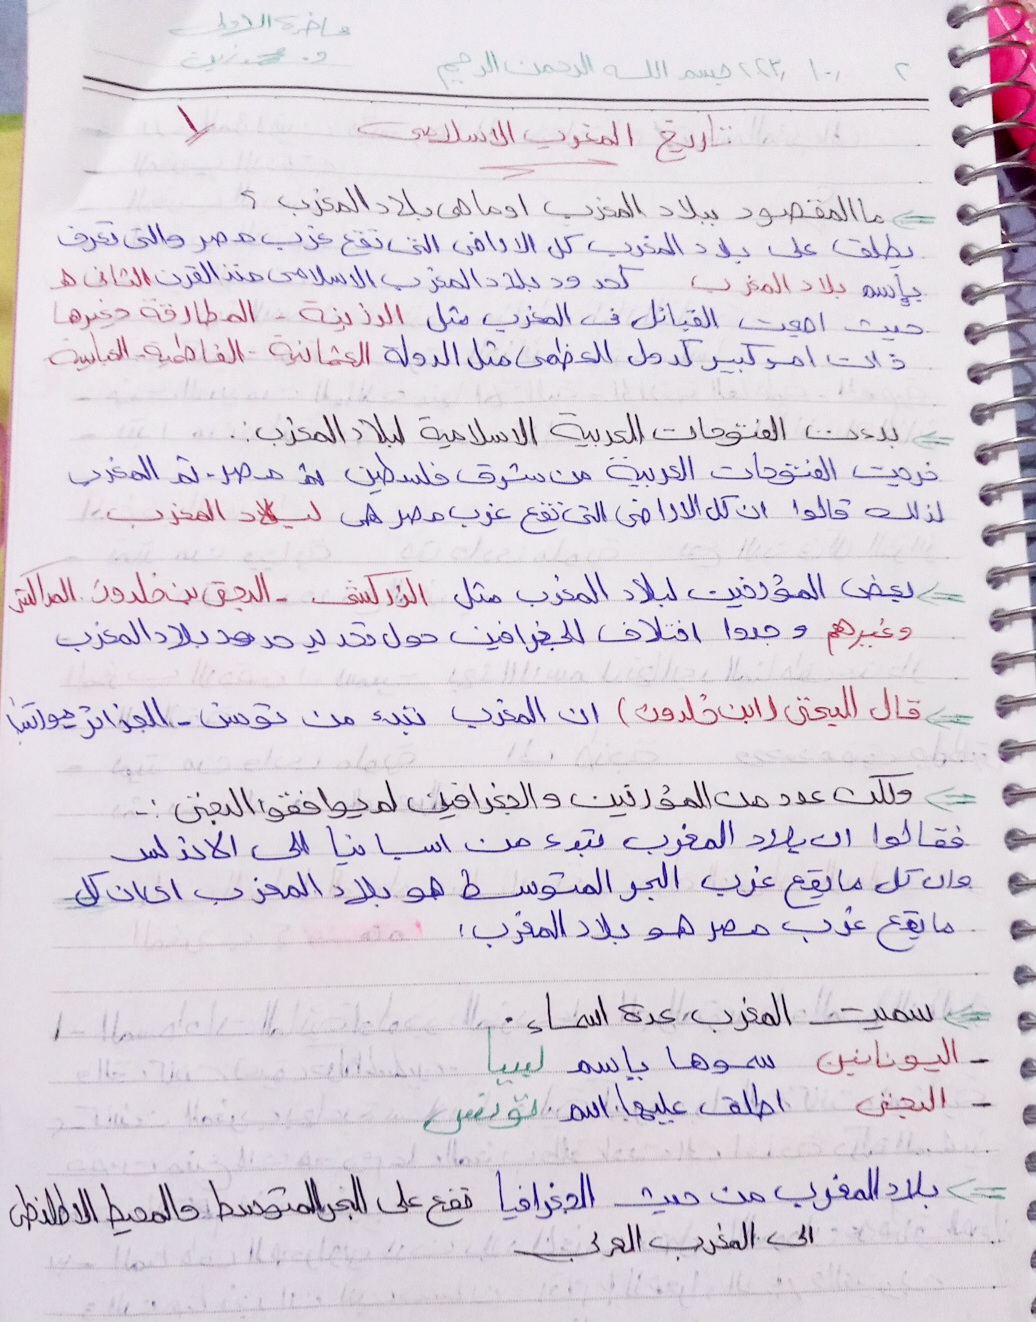 محاضرة الاولى
د. زين
٢ ١٠ / ٢٠٢٢ بسم الله الرحمن الرحيم
تاريخ المغرب الاسلامي ١
ما المقصود ببلاد المغرب او ما هي بلاد المغرب ؟
يطلق على بلاد المغرب كل الاراضي التي تقع غرب مصر والتي تعرف
بإسم بلاد المغرب كحدود بلاد المغرب الاسلامي منذ القرن الثاني هـ
حيث اصبحت القبائل في المغرب مثل - المطارقة وغيرها
ذات امر كبير كدول العظمى مثل الدولة العثمانية - الفاطمية - العباسية
بدءت الفتوحات العربية الاسلامية لبلاد المغرب :.
خرجت الفتوحات العربية من شرق فلسطين ثم مصر - ثم المغرب
لذلك قالوا ان كل الاراضي التي تقع غرب مصر هي لبلاد المغرب
بعض المؤرخين لبلاد المغرب مثل الزركشي - البعض بن خلدون - المراكشي
وغيرهم وجدوا اختلاف للجغرافين حول تحديد حدود بلاد المغرب
قال البعض (ابن خلدون) ان المغرب تبدء من تونس - الجزائر -
ولكن عدد من المؤرخين والجغرافين لم يوافقوا البعض :-
فقالوا ان بلاد المغرب تبدء من اسبانيا الى الاندلس
وان كل ما يقع غرب البحر المتوسط هو بلاد المغرب اي ان كل
ما يقع غرب مصر هو بلاد المغرب .
سميت المغرب عدة اسماء .
- اليونانين سموها بإسم ليبيا
- البعض اطلق عليها اسم تونس
بلاد المغرب من حيث الجغرافيا تقع على البحر المتوسط والمحيط الاطلنطي
الى المغرب العربي